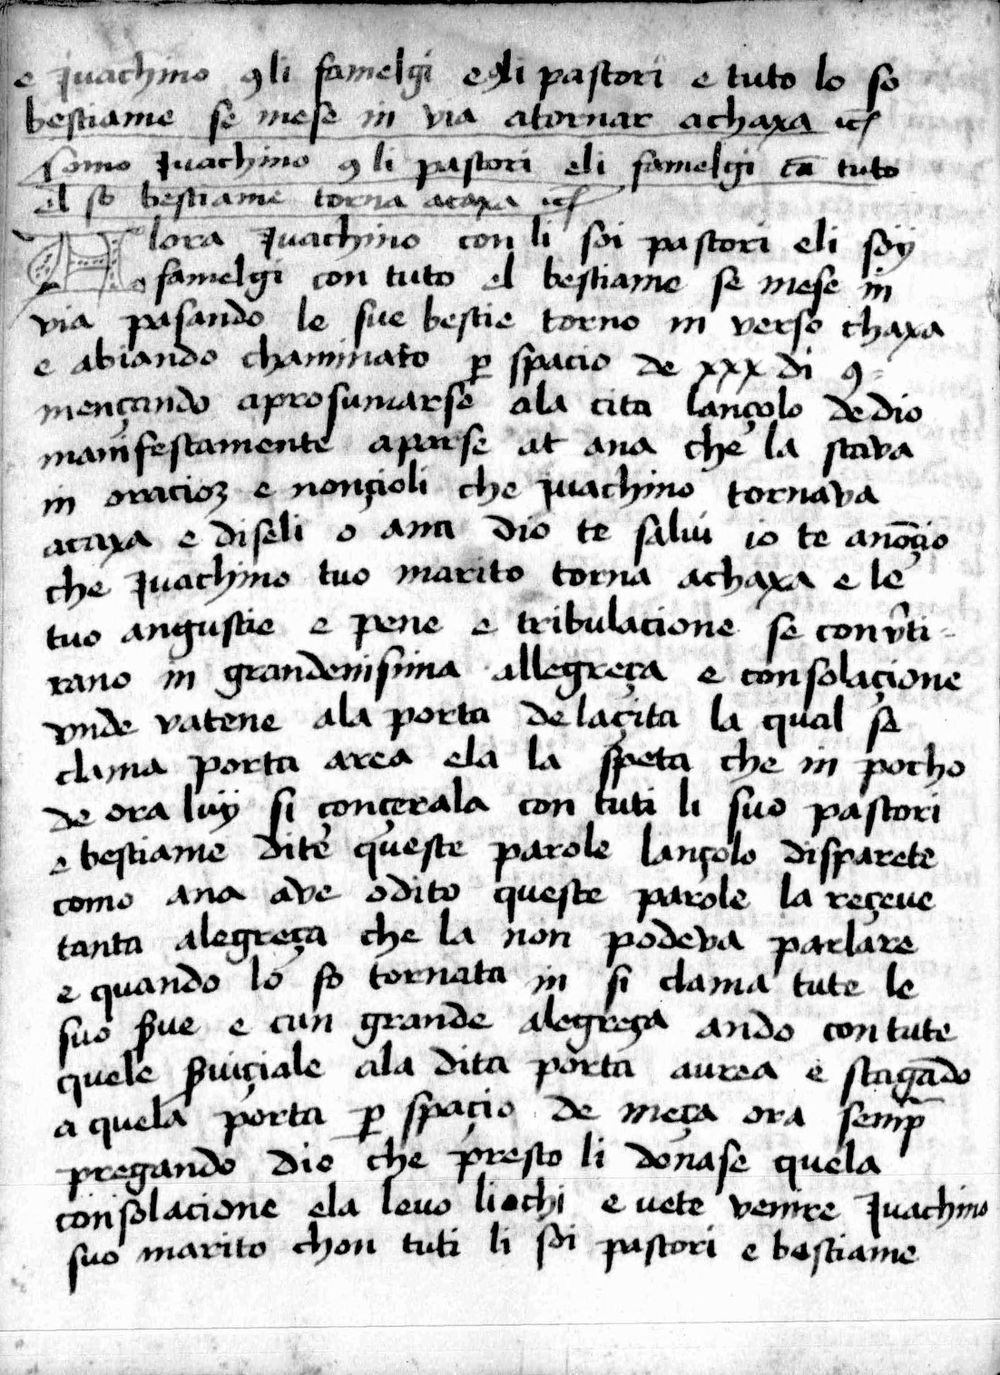 e Juachino ꝯ li famelgi e ꝯli pastori e tuto lo so
bestiame se mese in via atornar achaxa
Como Juachino ꝯ li pastori eli famelgi cū tuto
el so bestiame torna acaxa
Alora Juachino con li soi pastori eli soy
famelgi con tuto el bestiame se mese in
via pasando le sue bestie torno in verso chaxa
e abiando chaminato ꝑ spacio de xxx di ꝯ=
mençando aprosumarse ala cita lançolo de dio
manifestamente aparse at ana che la stava
in oracioꝫ e nonçioli che Juachino tornava
acaxa e diseli o ana dio te salvi io te anōçio
che Juachino tuo marito torna achaxa e le
tuo angustie e pene e tribulacione se conṽti-
rano in grandenisima allegreça e consolaçione
vnde vatene ala porta delaçita la qual se
clama porta area ela la speta che in pocho
de ora luy si conçerala con tuti li suo pastori
e bestiame dite queste parole lançolo disparete
como ana ave odito queste parole la reçeue
tanta alegreça che la non podeva parlare
e quando lo fo tornata in si clama tute le
suo s̄ue e cun grande alegreça ando con tute
quele s̄uiçiale ala dita porta aurea e stagādo
a quela porta ꝑ spaçio de meça ora semp̄
pregando dio che presto li donase quela
consolacione ela leuo liochi e uete venire Juachino
suo marito chon tuti li soi pastori e bestiame